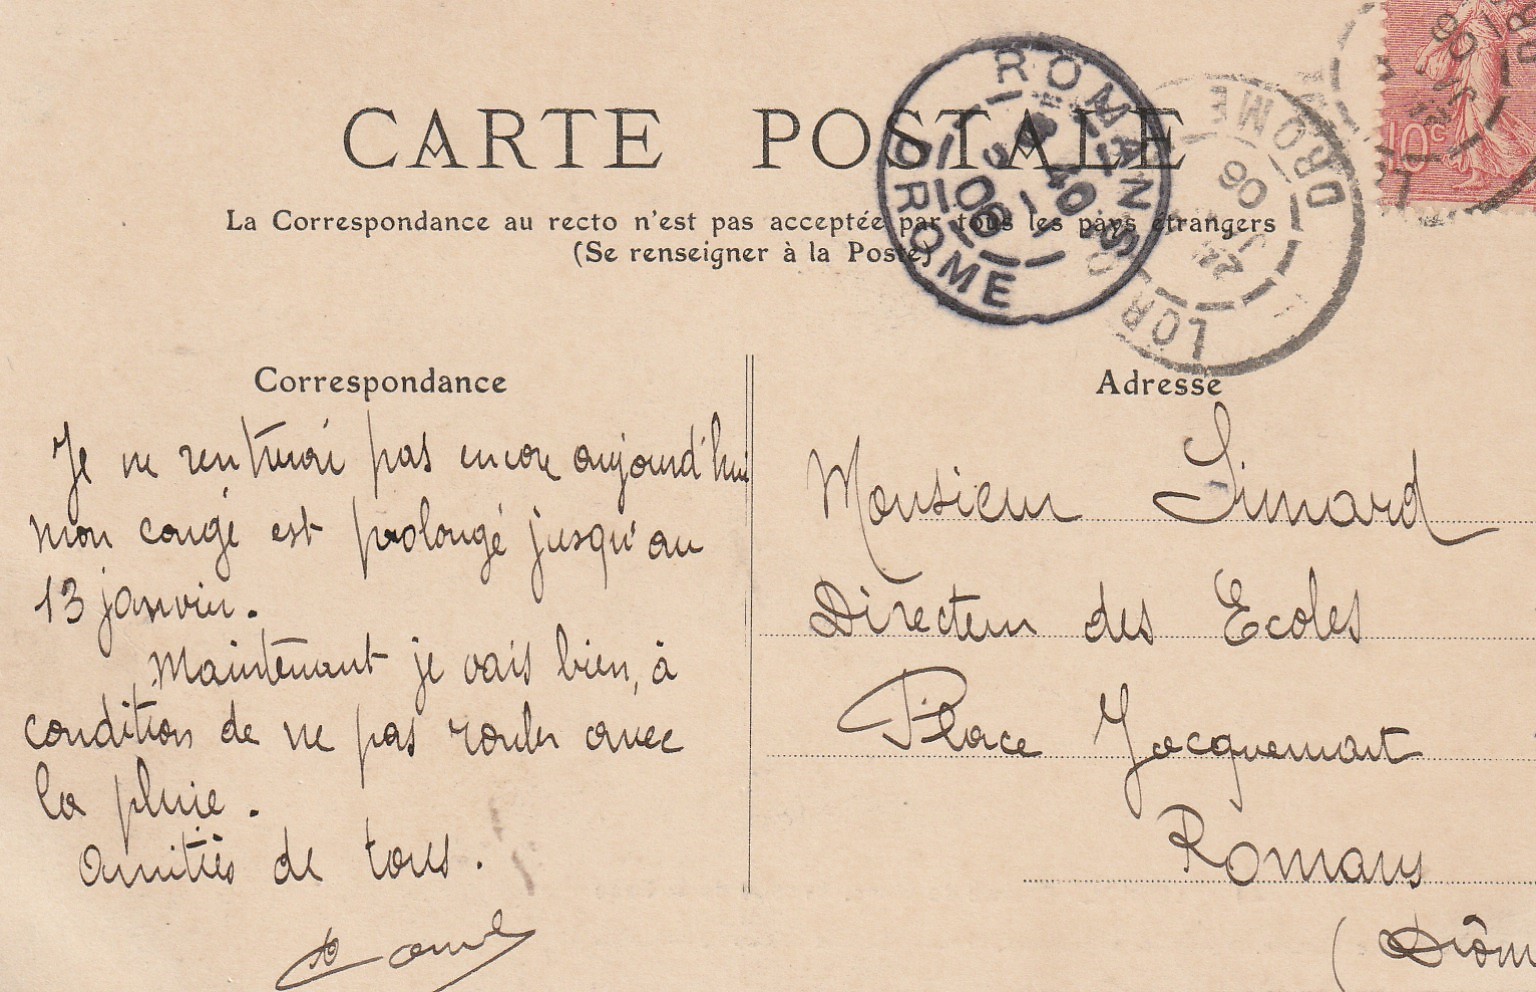 CARTE POSTALE
La Correspondance au recto n'est pas acceptée par tous les pays étrangers
(Se renseigner à la Poste)
ROMANS
DRÔME
3 - 1
06
DROME
06
LOR
10c
Correspondance
Je ne rentrerai pas encore aujourd'hui
mon congé est prolongé jusqu'au
13 janvier.
Maintenant je vais bien, à
condition de ne pas rouler avec
la pluie.
Amitiés de tous.
Adresse
Monsieur Simard
Directeur des Ecoles
Place Jacquemart
Romans
(Drôm